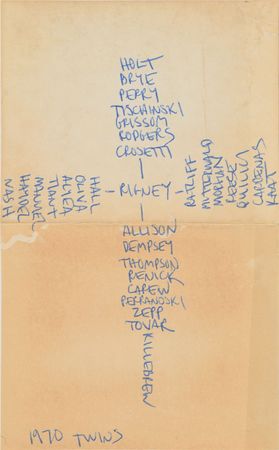 HOLT
BRYE
PERRY
TISCHINSKI
GRISSOM
RODGERS
CROSETTI
NASH
MANUEL
TIANT
OLIVA
HALL
RIGNEY
RATLIFF
MITTERWALD
MORGAN
REESE
QUILICI
CARDENAS
KAAT
ALLISON
DEMPSEY
THOMPSON
RENICK
CAREW
PERRANOSKI
ZEPP
TOVAR
KILLEBREW
1970 TWINS